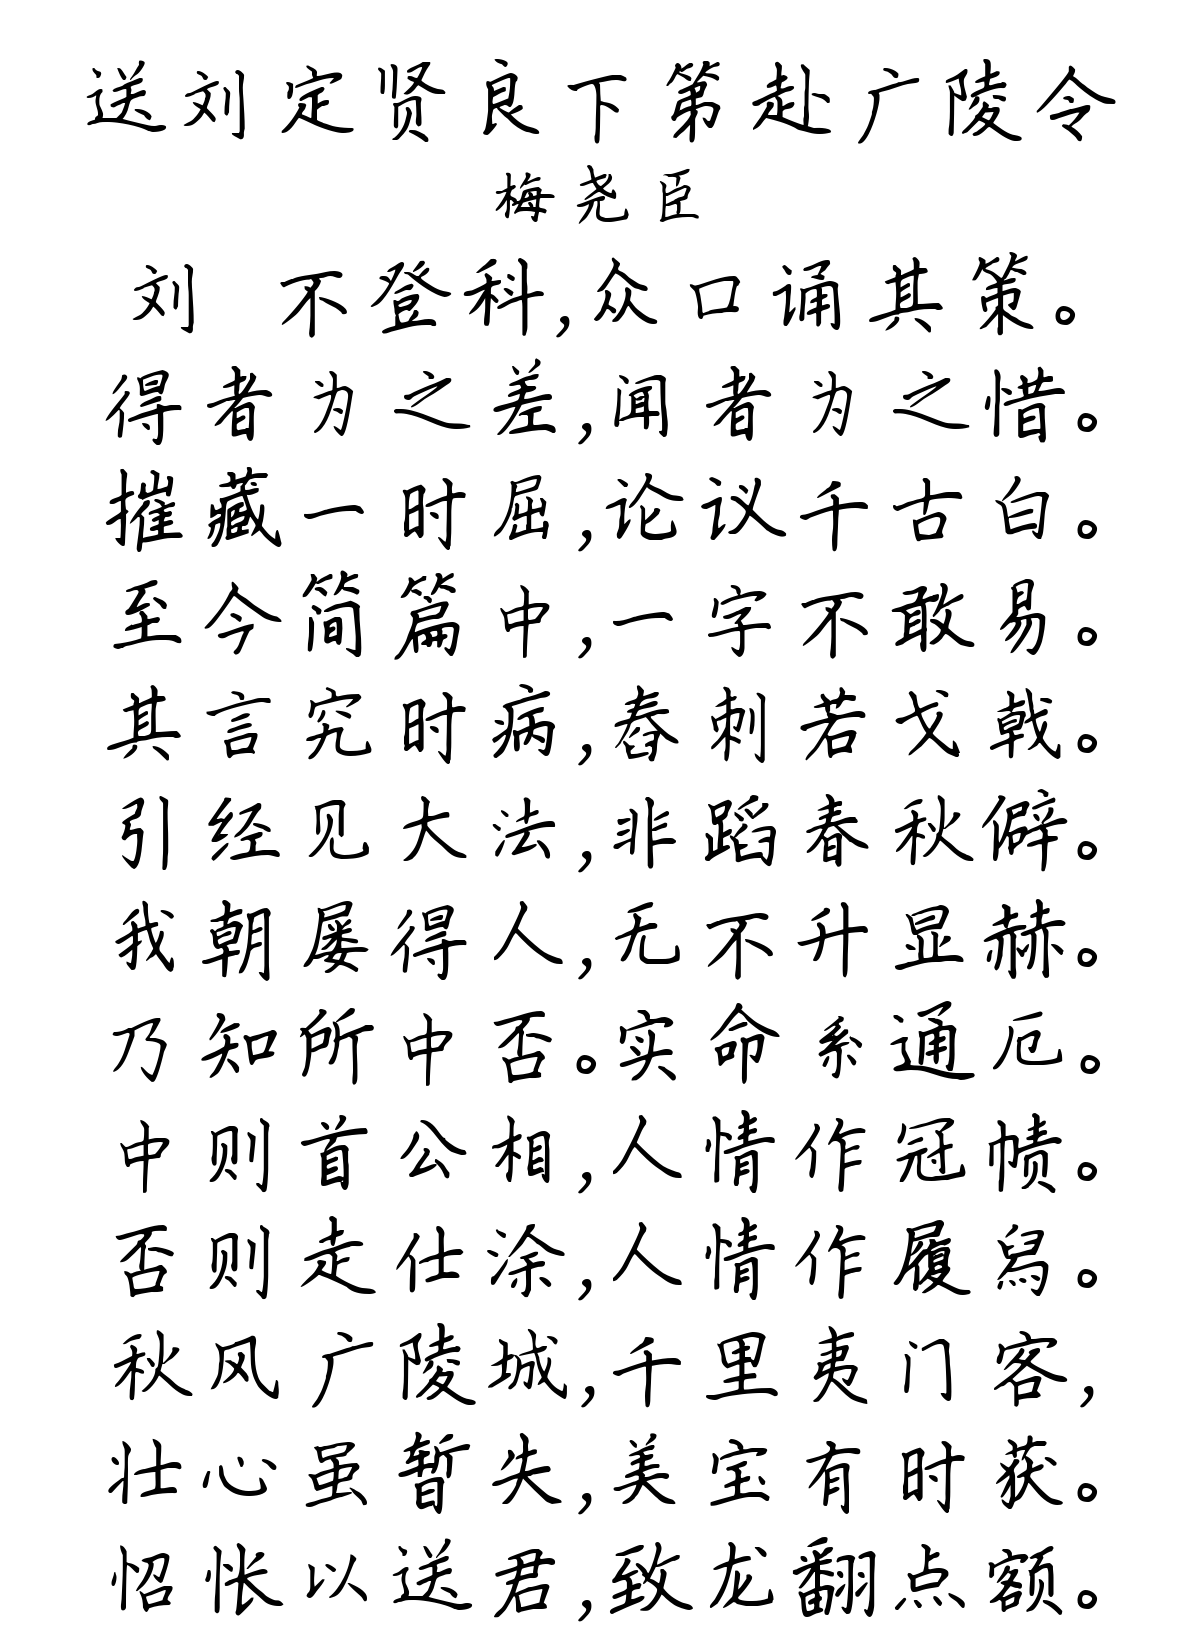 送刘定贤良下第赴广陵令
梅尧臣
刘 不登科,众口诵其策。
得者为之差,闻者为之惜。
摧藏一时屈,论议千古白。
至今简篇中,一字不敢易。
其言究时病,舂刺若戈戟。
引经见大法,非蹈春秋僻。
我朝屡得人,无不升显赫。
乃知所中否。实命系通厄。
中则首公相,人情作冠帻。
否则走仕涂,人情作履舄。
秋风广陵城,千里夷门客,
壮心虽暂失,美宝有时获。
怊怅以送君,致龙翻点额。